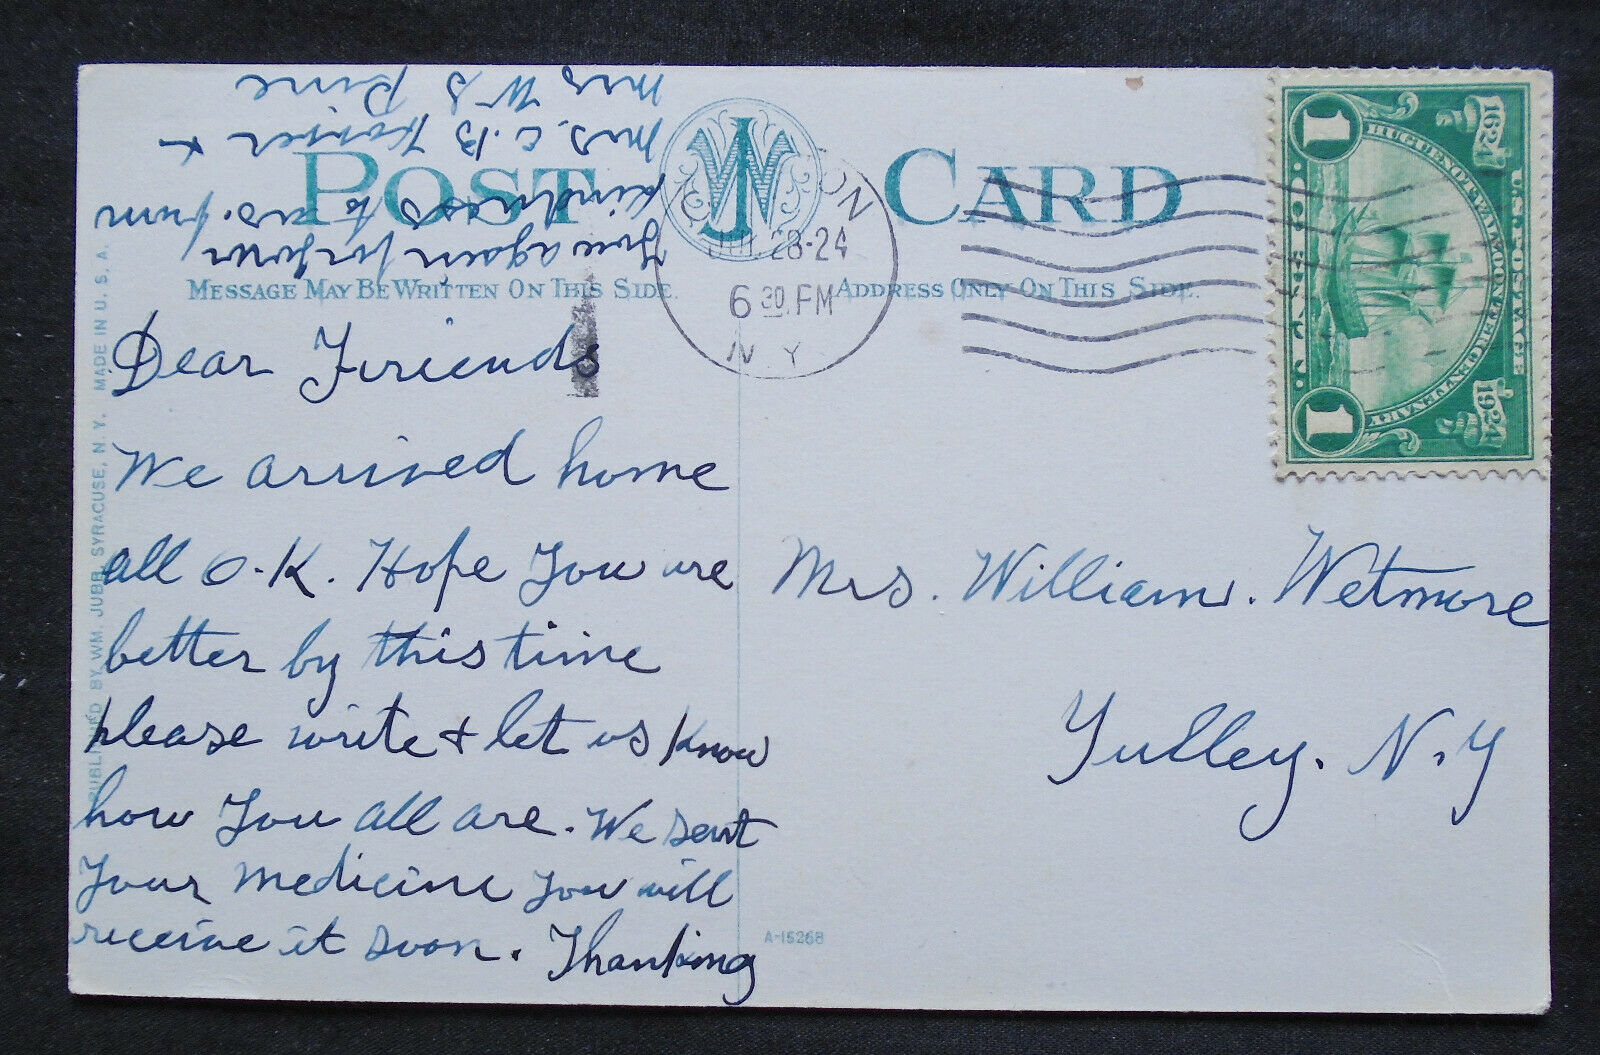 POST CARD
MESSAGE MAY BE WRITTEN ON THIS SIDE.
ADDRESS ONLY ON THIS SIDE.
28-24
6 30 PM
N. Y.
1624
1924
HUGUENOT-WALLOON TERCENTENARY
U.S. POSTAGE
1
1
Dear Friends
We arrived home
all O.K. Hope You are
better by this time
please write & let us know
how You all are. We sent
Your medicine You will
receive it soon. Thanking
You again for your
kindness to us. from
Mrs. C. B &
Mrs W S Rine
Mrs. William. Wetmore
Tulley. N.Y
PUBLISHED BY WM. JUBB, SYRACUSE, N. Y. MADE IN U. S. A.
A-15268